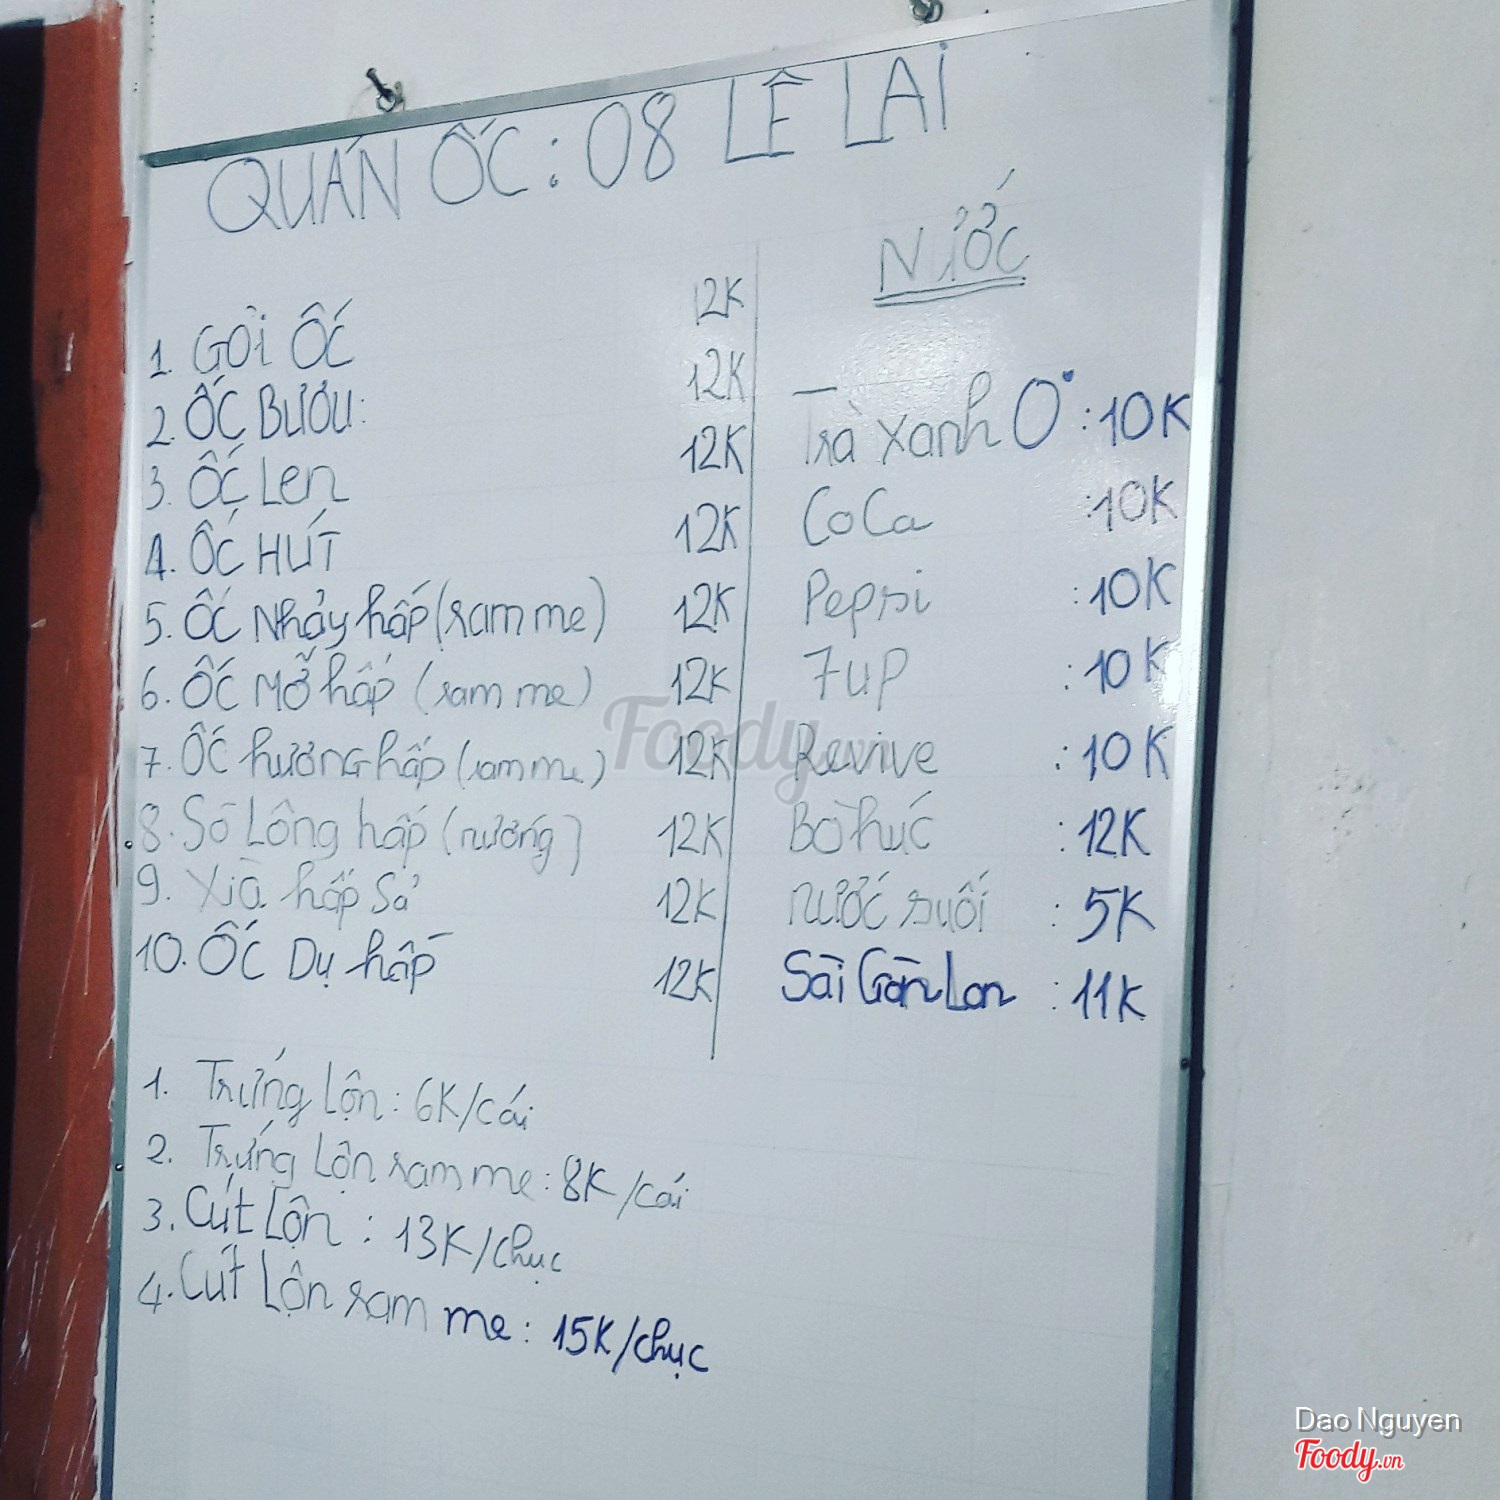 QUÁN ỐC: 08 LÊ LAI
1. GỎI ỐC 12K
2. ỐC BƯƠU: 12K
3. ỐC Len 12K
4. ỐC HÚT 12K
5. ỐC Nhảy hấp (ram me) 12K
6. ỐC MỠ hấp (ram me) 12K
7. ỐC hương hấp (ram me) 12K
8. Sò Lông hấp (nướng) 12K
9. Xìa hấp Sả 12K
10. ỐC Dụ hấp 12K
NƯỚC
Trà xanh O° : 10K
CoCa : 10K
Pepsi : 10K
7up : 10K
Revive : 10K
Bò húc : 12K
nước suối : 5K
Sài Gòn Lon : 11K
1. Trứng Lộn: 6K/cái
2. Trứng Lộn ram me: 8K/cái
3. Cút Lộn : 13K/chục
4. Cút Lộn ram me: 15K/chục
Foody.vn
Dao Nguyen
Foody.vn